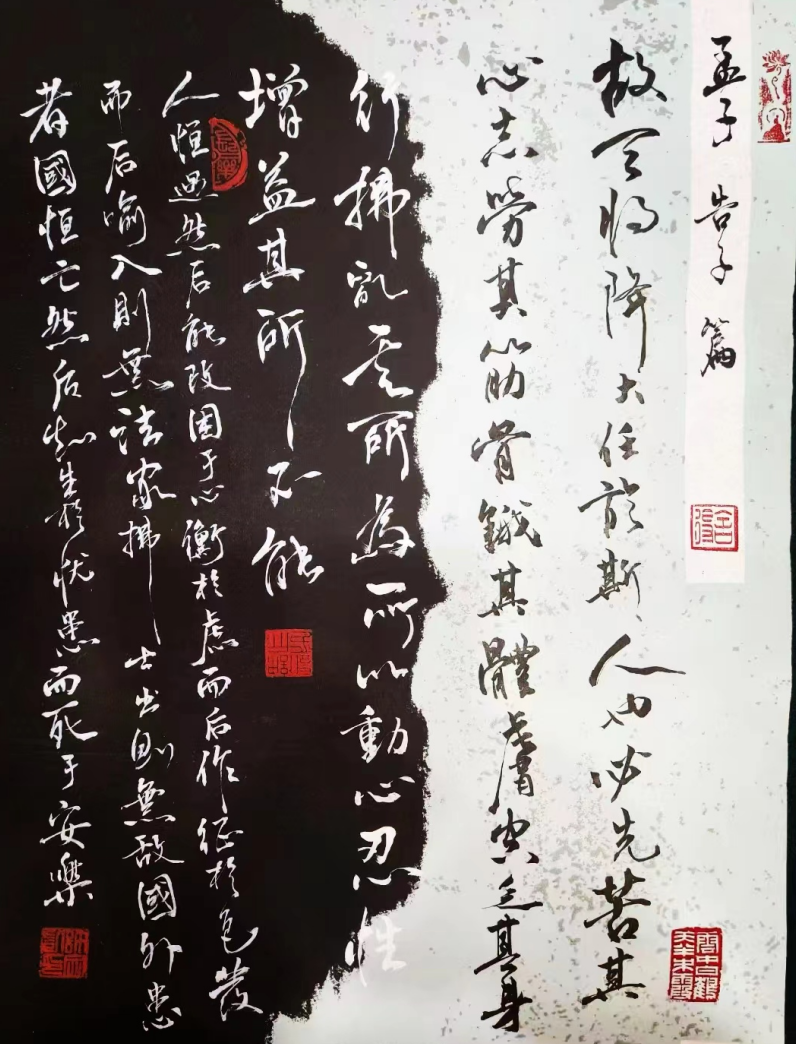 孟子 告子 篇
故天將降大任於斯人也必先苦其
心志勞其筋骨餓其體膚空乏其身
行拂亂其所為所以動心忍性
增益其所不能
人恒過然后能改困于心衡於慮而后作征於色發
而后喻入則無法家拂士出則無敵國外患
者國恒亡然后知生於忧患而死于安樂